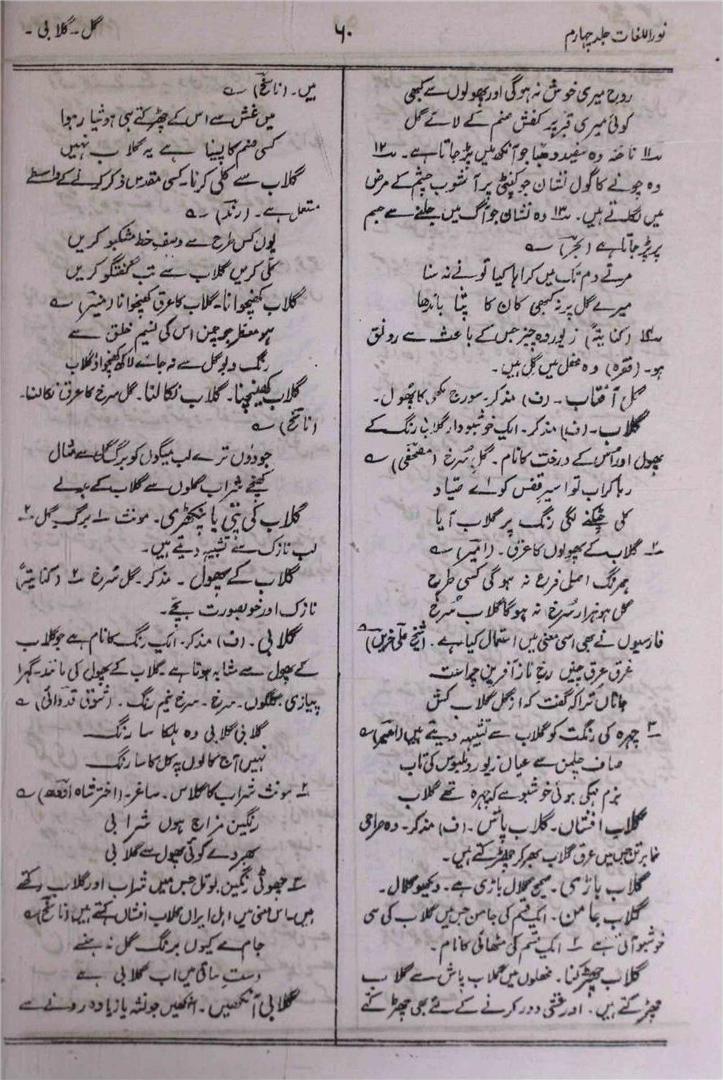 نوراللغات جلد چہارم
۶۰
گل - گلابی -
روح میری خوش نہ ہوگی اور پھولوں سے کبھی
کوئی میری قبر پر کفش صنم کے لائے گل
۱۱ ناخنہ وہ سفید دھبا جو آنکھ میں پڑ جاتا ہے۔ ۱۲
وہ چونے کا گول نشان جو کنپٹی پر آشوب چشم کے مرض
میں لگاتے ہیں۔ ۱۳ وہ نشان جو آگ میں جلنے سے جسم
پر پڑ جاتا ہے (بحر) ؎
مرتے دم تاب میں کراہا کیا تو نے نہ سنا
میرے گل پر نہ کبھی کان کا پتا باندھا
۱۴ (کنایتہً) زیور وہ چیز جس کے باعث سے رونق
ہو۔ (فقرہ) وہ محفل میں گل ہیں۔
گل آفتاب۔ (ف) مذکر۔ سورج مکھی کا پھول۔
گلاب۔ (ف) مذکر۔ ایک خوشبودار گلابی رنگ کے
پھول اور اس کے درخت کا نام۔ گل سُرخ (مصحفی) ؎
رہا کر اب تو اسیرِ قفس کو اے صیاد
کلی چٹکنے لگی رنگ پر گلاب آیا
۲ گلاب کے پھولوں کا عرق۔ (امیر) ؎
ہمرنگ اصل فرع نہ ہوگی کسی طرح
گل ہو ہزار سُرخ نہ ہوگا گلاب سُرخ
فارسیوں نے بھی اسی معنی میں استعمال کیا ہے۔ (شیخ علی حزیں)
غرق عرق جبیں رخ ناز آفرین چراست
جاناں ترا کہ گفت کہ از گل گلاب کش
۳ چہرہ کی رنگت کو گلاب سے تشبیہ دیتے ہیں (امیر) ؎
صاف چلمن سے عیاں زیور و ملبوس کی تاب
بزم مہکی ہوئی خوشبو سے کہ چہرہ تھے گلاب
گلاب افشاں۔ گلاب پاش۔ (ف) مذکر۔ وہ صراحی
نما برتن جس میں عرق گلاب بھر کر چھڑکتے ہیں۔
گلاب باڑی۔ صحیح گلال باڑی ہے۔ دیکھو گلال۔
گلاب جامن۔ ایک قسم کی جامن جس میں گلاب کی سی
خوشبو آتی ہے ۲ ایک قسم کی مٹھائی کا نام۔
گلاب چھڑکنا۔ محفلوں میں گلاب پاش سے گلاب
چھڑکتے ہیں۔ اور غشی دور کرنے کے لئے بھی چھڑکتے
ہیں۔ (ناسخ) ؎
میں غش سے اس کے چھڑکتے ہی ہوشیار ہوا
کسی صنم کا پسینا ہے یہ گلاب نہیں
گلاب سے کلی کرنا۔ کسی مقدس ذکر کرنے کے واسطے
مستعمل ہے۔ (رند) ؎
یوں کس طرح سے وصفِ خط مشکبو کریں
کلی کریں گلاب سے تب گفتگو کریں
گلاب کھنچوانا۔ گلاب کا عرق کھنچوانا (منیر) ؎
ہو معطل جو چمن اس کی نسیم خلق سے
رنگ و بو گل سے نہ جائے لاکھ کھنچواؤ گلاب
گلاب کھینچنا۔ گلاب نکالنا۔ گل سرخ کا عرق نکالنا۔
(ناسخ) ؎
جو دوں ترے لب میگوں کو برگ گل سے مثال
کھنچے شراب گلوں سے گلاب کے بدلے
گلاب کی پتی یا پنکھڑی۔ مونث ۱ برگ گل۔ ۲
لب نازک سے تشبیہ دیتے ہیں۔
گلاب کے پھول۔ مذکر۔ گل سُرخ ۲ (کنایتہً)
نازک اور خوبصورت بچے۔
گلابی۔ (ف) مذکر۔ ایک رنگ کا نام ہے جو گلاب
کے پھول سے مشابہ ہوتا ہے۔ گلاب کے پھول کی مانند۔ گہرا
پیازی۔ گلگوں۔ سرخ۔ سرخ نیم رنگ۔ (شوق قدوائی) ؎
گلابی گلابی وہ ہلکا سا رنگ
نہیں آج گالوں پہ کل کا سا رنگ
۲ مونث شراب کا گلاس۔ ساغر۔ (اختر شاہ اودھ) ؎
رنگین مزاج ہوں شرابی
بھر دے کوئی پھول سے گلابی
۳ چھوٹی رنگین بوتل جس میں شراب اور گلاب رکھتے
ہیں۔ اس معنی میں اہل ایران گلاب افشاں کہتے ہیں (ناسخ) ؎
جام مے کیوں برنگ گل نہ ہنسے
دستِ ساقی میں اب گلابی ہے
گلابی آنکھیں۔ آنکھیں جو نشہ یا زیادہ رونے سے